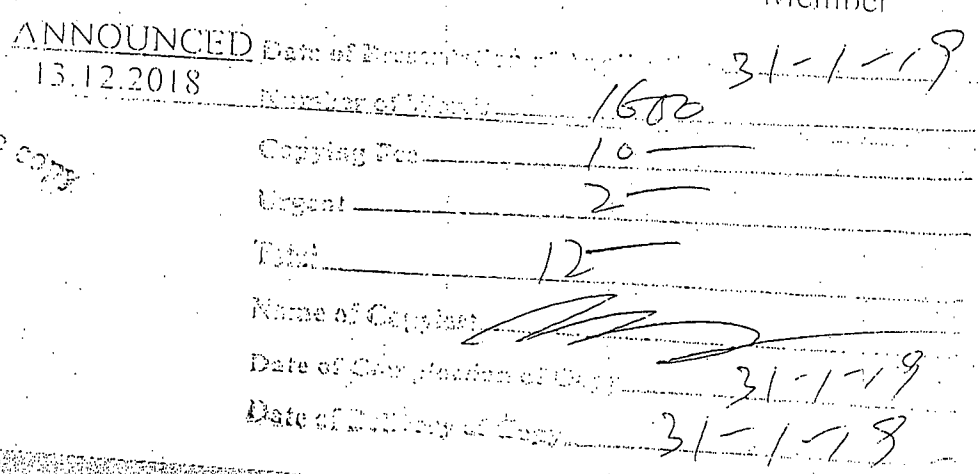 Member
ANNOUNCED
13.12.2018
Date of Presentation of Application 31-1-19
Number of Words 1600
copy
Copying Fee 10
Urgent 2
Total 12
Name of Copyiest
Date of Completion of Copy 31-1-19
Date of Delivery of Copy 31-1-19